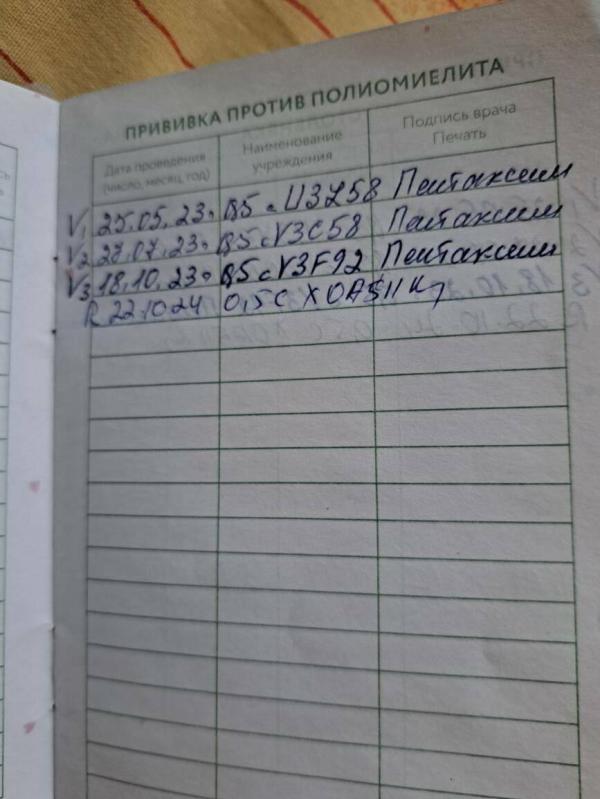 ПРИВИВКА ПРОТИВ ПОЛИОМИЕЛИТА
Дата проведения
(число, месяц, год)
Наименование
учреждения
Подпись врача
Печать
V1 25.05.23 0,5 с U3L58 Пентаксим
V2 27.07.23 0,5 с V3C58 Пентаксим
V3 18.10.23 0,5 с V3F92 Пентаксим
R 22.10.24 0,5 с